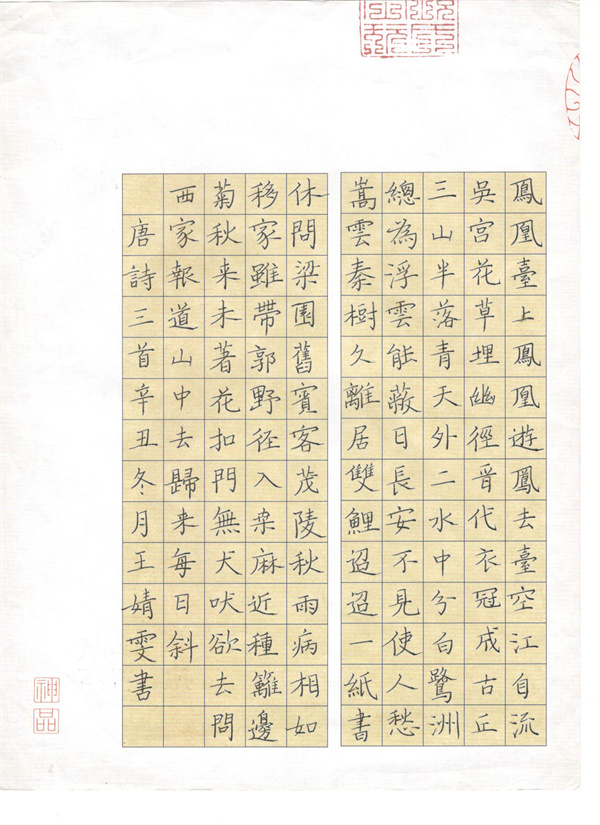 鳳凰臺上鳳凰遊鳳去臺空江自流
吳宮花草埋幽徑晉代衣冠成古丘
三山半落青天外二水中分白鷺洲
總為浮雲能蔽日長安不見使人愁
嵩雲秦樹久離居雙鯉迢迢一紙書
休問梁園舊賓客茂陵秋雨病相如
移家雖帶郭野径入桒麻近種籬邊
菊秋来未著花扣門無犬吠欲去問
西家報道山中去歸来每日斜
唐詩三首辛丑冬月王婧雯書
神品